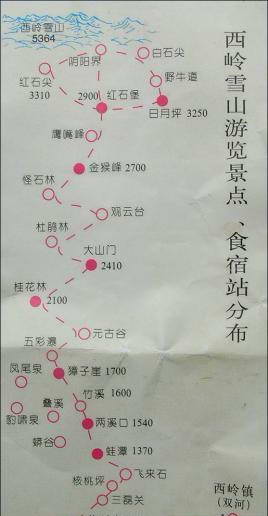 西岭雪山
5364
阴阳界
白石尖
红石尖
3310
野牛道
2900
红石堡
日月坪 3250
鹰嘴峰
金猴峰 2700
怪石林
观云台
杜鹃林
大山门
2410
桂花林
2100
元古谷
五彩瀑
凤尾泉
獐子崖 1700
竹溪 1600
叠溪
豹啸泉
两溪口 1540
蟒谷
蛙潭 1370
飞来石
核桃坪
三磊关
西岭镇
(双河)
西岭雪山游览景点、食宿站分布